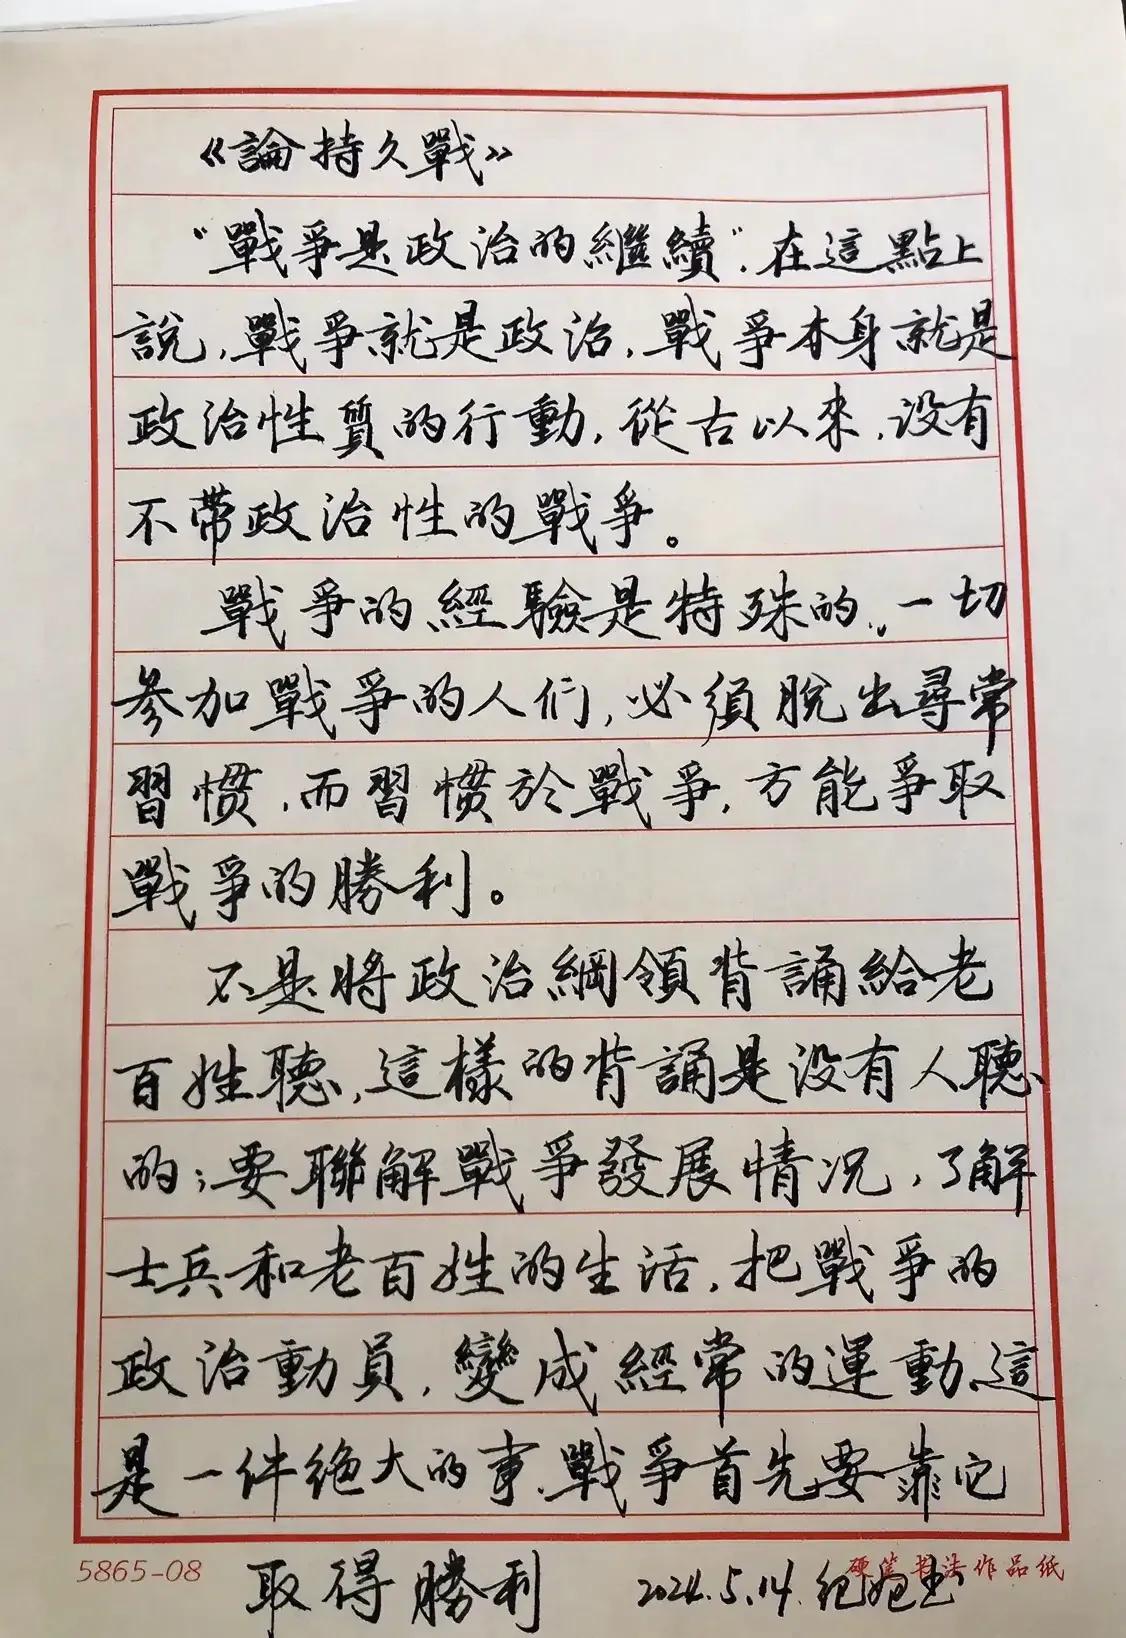 《論持久戰》
“戰爭是政治的繼續”.在這點上
說,戰爭就是政治,戰爭本身就是
政治性質的行動,從古以來,没有
不帶政治性的戰爭。
戰爭的經驗是特殊的,一切
參加戰爭的人们,必須脫出尋常
習慣,而習慣於戰爭,方能爭取
戰爭的勝利。
不是將政治綱領背誦給老
百姓聽,這樣的背誦是没有人聽
的;要聯解戰爭發展情况,了解
士兵和老百姓的生活,把戰爭的
政治動員,變成經常的運動,這
是一件絶大的事,戰爭首先要靠它
取得勝利
2024.5.14.
5865-08
硬笔书法作品纸